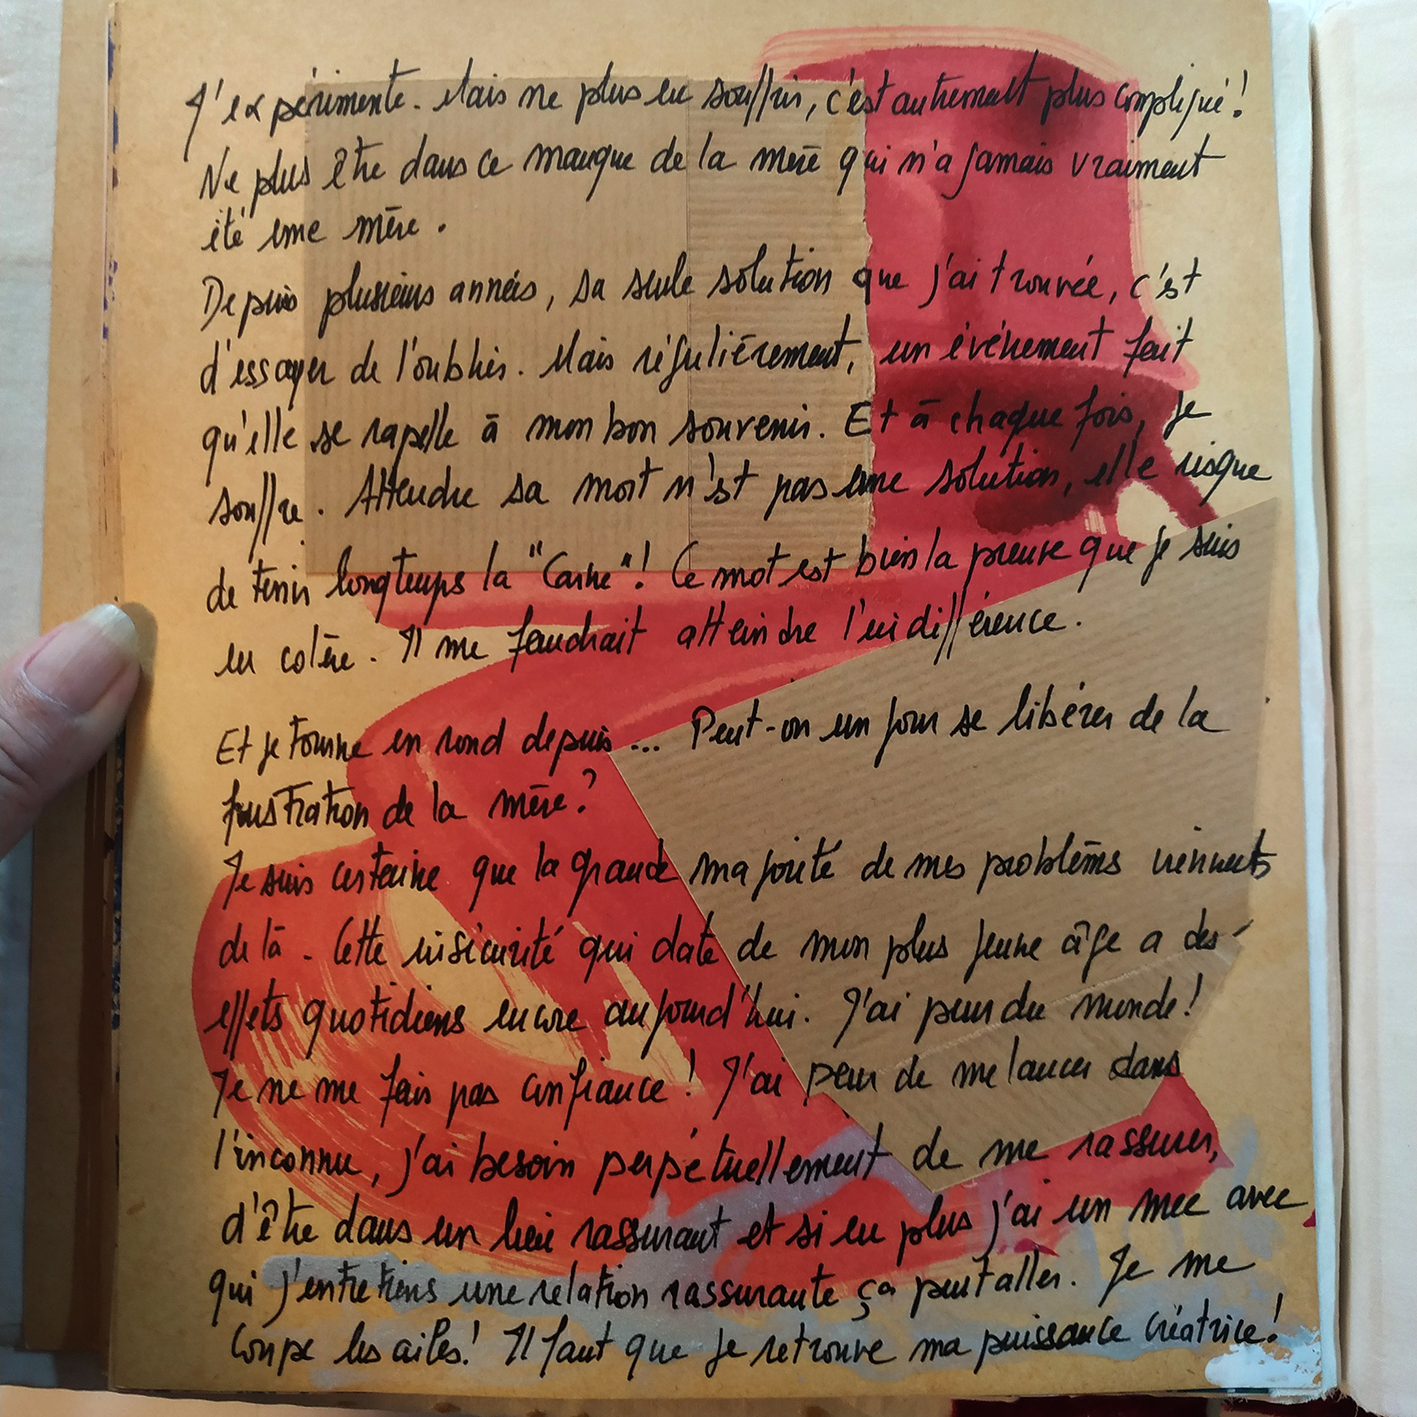 J'expérimente. Mais ne plus en souffrir, c'est autrement plus compliqué!
Ne plus être dans ce manque de la mère qui n'a jamais vraiment
été une mère.
Depuis plusieurs années, la seule solution que j'ai trouvée, c'est
d'essayer de l'oublier. Mais régulièrement, un événement fait
qu'elle se rapelle à mon bon souvenir. Et à chaque fois, je
souffre. Attendre sa mort n'est pas une solution, elle risque
de tenir longtemps la "Carne"! Ce mot est bien la preuve que je suis
en colère. Il me faudrait atteindre l'indifférence.
Et je tourne en rond depuis... Peut-on un jour se libérer de la
frustration de la mère?
Je suis certaine que la grande majorité de mes problèmes viennent
de là. Cette insécurité qui date de mon plus jeune âge a des
effets quotidiens encore aujourd'hui. J'ai peur du monde!
Je ne me fais pas confiance! J'ai peur de me lancer dans
l'inconnu, j'ai besoin perpétuellement de me rassurer,
d'être dans un lieu rassurant et si en plus j'ai un mec avec
qui j'entretiens une relation rassurante ça peut aller. Je me
coupe les ailes! Il faut que je retrouve ma puissance créatrice!